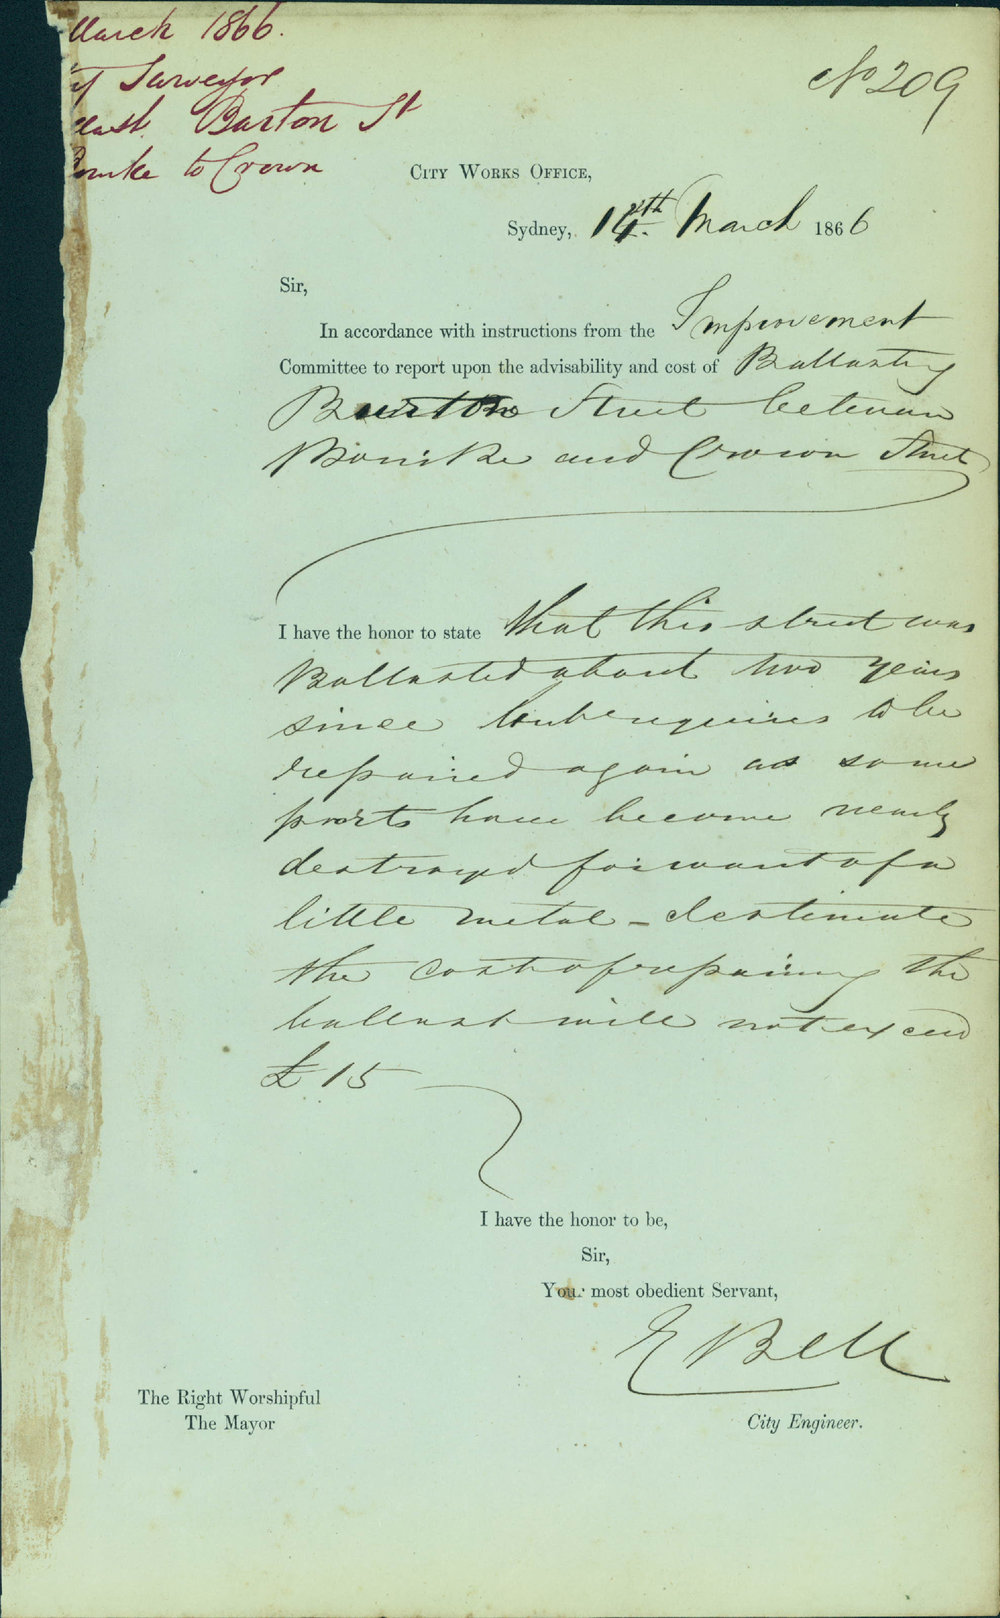 March 1866.
ty Surveyor
llast Barton St
Bourke to Crown
No 209
City Works Office,
Sydney, 14th March 1866
Sir,
In accordance with instructions from the Improvement
Committee to report upon the advisability and cost of Ballasting
Burton Street between
Bourke and Crown Street
I have the honor to state that this street was
Ballasted about two years
since but requires to be
repaired again as some
parts have become nearly
destroyed for want of a
little metal - I estimate
the cost of repairing the
ballast will not exceed
£15
I have the honor to be,
Sir,
Your most obedient Servant,
E Bell
The Right Worshipful
The Mayor
City Engineer.